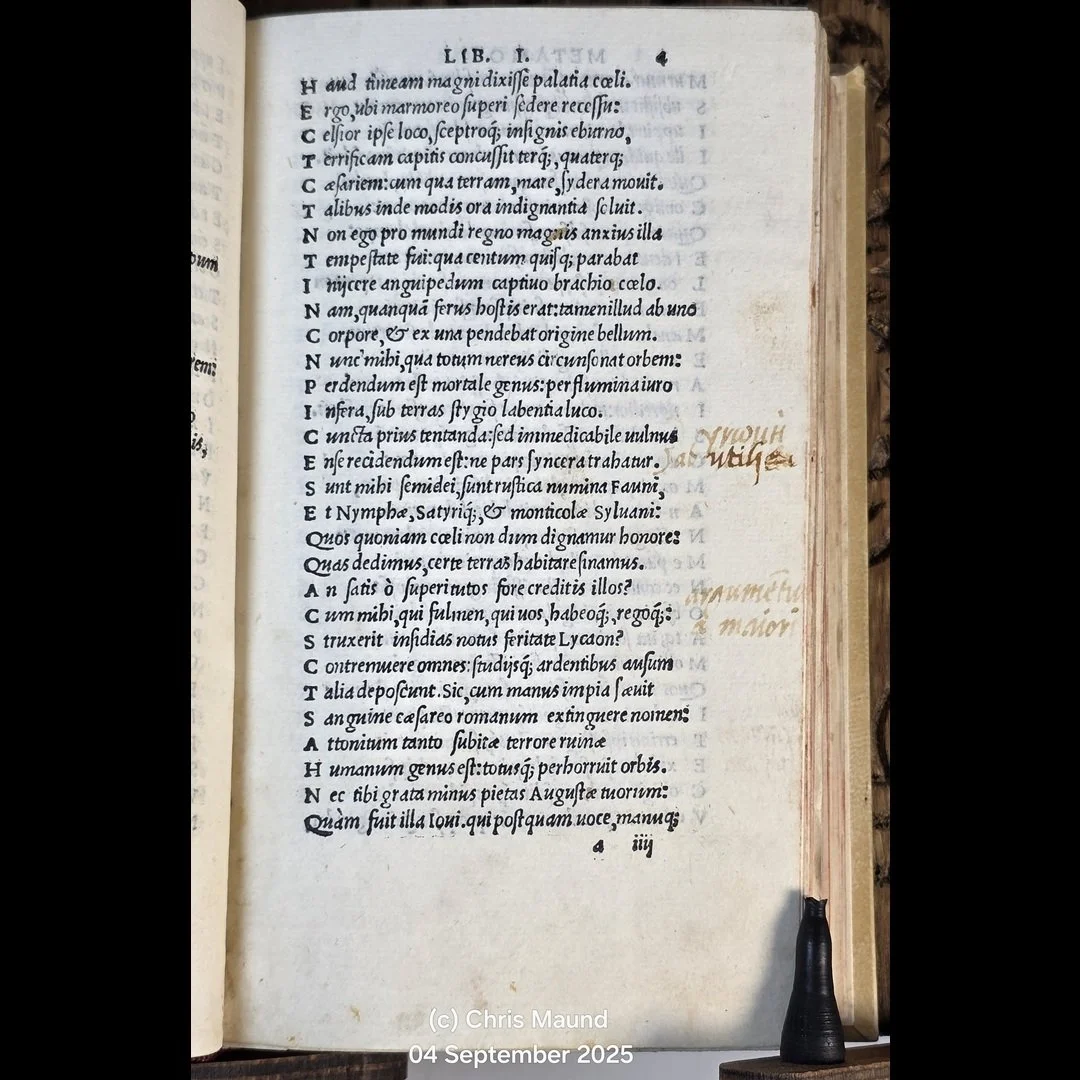 LIB. I. 4
H aud timeam magni dixisse palatia cœli.
E rgo, ubi marmoreo superi sedere recessu:
C elsior ipse loco, sceptroq; insignis eburno,
T errificam capitis concussit terq;, quaterq;
C æsariem: cum qua terram, mare, sydera mouit.
T alibus inde modis ora indignantia soluit.
N on ego pro mundi regno magnis anxius illa
T empestate fui: qua centum quisq; parabat
I nijcere anguipedum captiuo brachia cœlo.
N am, quanquā ferus hostis erat: tamen illud ab uno
C orpore, & ex una pendebat origine bellum.
N unc mihi, qua totum nereus circunsonat orbem:
P erdendum est mortale genus: per flumina iuro
I nfera, sub terras stygio labentia luco.
C uncta prius tentanda: sed immedicabile uulnus
E nse recidendum est: ne pars syncera trahatur.
S unt mihi semidei, sunt rustica numina Fauni,
E t Nymphæ, Satyriq;, & monticolæ Syluani:
Quos quoniam cœli non dum dignamur honore:
Quas dedimus, certe terras habitare sinamus.
A n satis ò superi tutos fore creditis illos?
C um mihi, qui fulmen, qui uos, habeoq;, regoq;:
S truxerit insidias notus feritate Lycaon?
C ontremuere omnes: studijsq; ardentibus ausum
T alia deposcunt. Sic, cum manus impia sæuit
S anguine cæsareo romanum extinguere nomen:
A ttonitum tanto subitæ terrore ruinæ
H umanum genus est: totusq; perhorruit orbis.
N ec tibi grata minus pietas Augustæ tuorum:
Quàm fuit illa Ioui. qui postquam uoce, manuq;
a iiij
utilis
argumētū
a maiori
(c) Chris Maund
04 September 2025